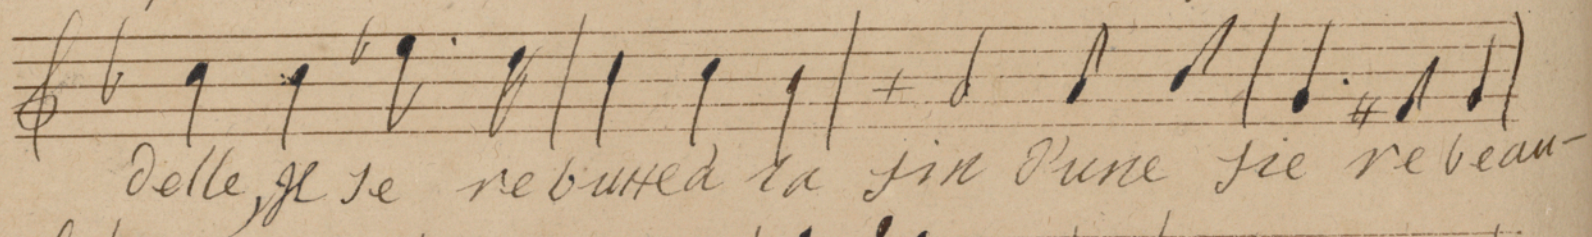 delle, Il se rebutted la fin d'une fie re beau-